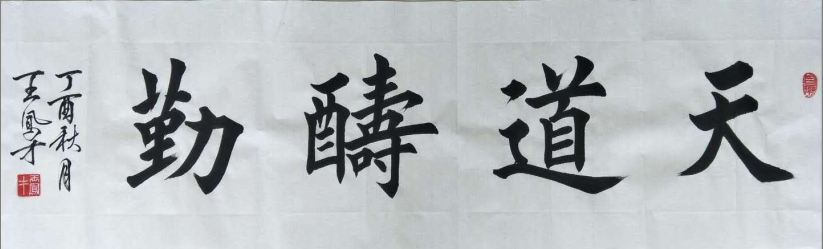 天道醻勤
丁酉秋月
王鳳才